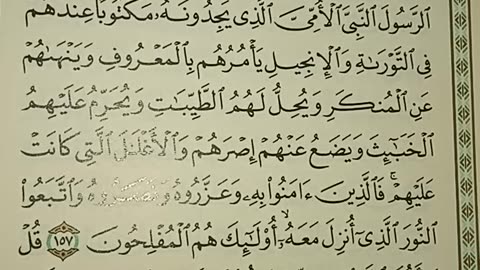 ٱلرَّسُولَ ٱلنَّبِيَّ ٱلْأُمِّيَّ ٱلَّذِي يَجِدُونَهُۥ مَكْتُوبًا عِندَهُمْ
فِي ٱلتَّوْرَىٰةِ وَٱلْإِنجِيلِ يَأْمُرُهُم بِٱلْمَعْرُوفِ وَيَنْهَىٰهُمْ
عَنِ ٱلْمُنكَرِ وَيُحِلُّ لَهُمُ ٱلطَّيِّبَٰتِ وَيُحَرِّمُ عَلَيْهِمُ
ٱلْخَبَٰٓئِثَ وَيَضَعُ عَنْهُمْ إِصْرَهُمْ وَٱلْأَغْلَٰلَ ٱلَّتِي كَانَتْ
عَلَيْهِمْۚ فَٱلَّذِينَ ءَامَنُوا۟ بِهِۦ وَعَزَّرُوهُ وَنَصَرُوهُ وَٱتَّبَعُوا۟
ٱلنُّورَ ٱلَّذِيٓ أُنزِلَ مَعَهُۥٓۙ أُو۟لَٰٓئِكَ هُمُ ٱلْمُفْلِحُونَ ١٥٧ قُلْ